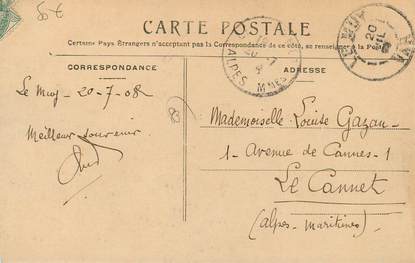 35€
CARTE POSTALE
Certains Pays Étrangers n'acceptant pas la Correspondance de ce côté, se renseigner à la Poste
CORRESPONDANCE
ADRESSE
ALPES MMES
LE MUY
20
VAR
Le Muy 20-7-08
Meilleur souvenir
83
Mademoiselle Louise Gazan
1 - Avenue de Cannes - 1
Le Cannet
(Alpes-Maritimes)